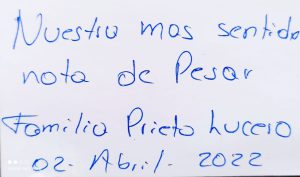 Nuestra mas sentida
nota de Pesar
Familia Prieto Lucero
02. Abril. 2022